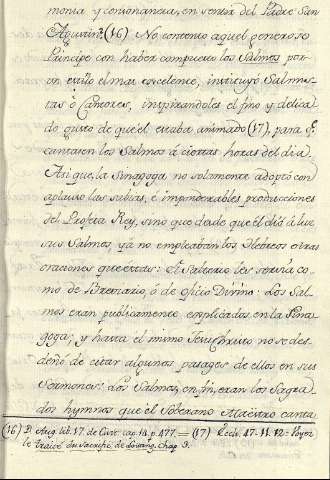 monia y consonancia, en sentir del Padre San
Agustin. (16) No contento aquel generoso
Principe con haber compuesto los Salmos por
un estilo el mas excelente, instituyó Salmis-
tas ó Cantores, inspirandoles el fino y delica-
do gusto de que él estaba animado (17), para q.
cantasen los Salmos á ciertas horas del dia.
Asi que, la Sinagoga no solamente adoptó con
aplauso las sabias, é imponderables producciones
del Profeta Rey, sino que desde que él dió á luz
sus Salmos, ya no empleaban los Hebreos otras
oraciones que estas: El Salterio les servia co-
mo de Breviario, ó de oficio Divino: Los Sal-
mos eran publicamente explicados en la Sina-
goga; y hasta el mismo Jesu Christo no se des-
deñó de citar algunos pasages de ellos en sus
Sermones: Los Salmos, en fin, eran los Sagra-
dos hymnos que el Soberano Maestro canta
(16) D. Aug. lib. 17. de Civit. cap. 14. p. 477. = (17) Eccli. 47. 11. 12. - Voyez
le Traité du Sacrifice de Louange. Chap. 3.